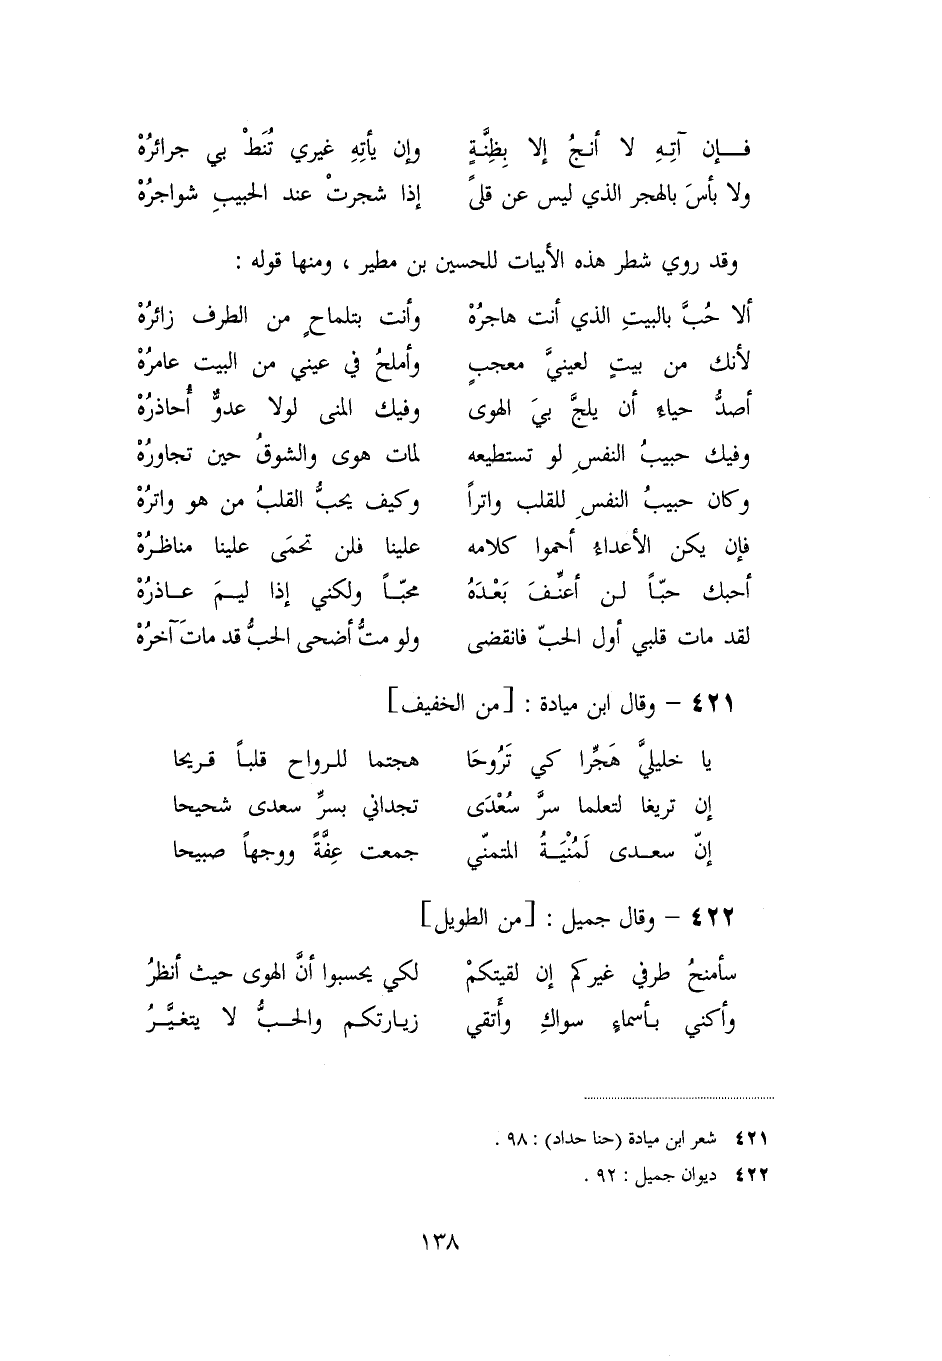 فــإن آتِهِ لا أنجُ إلا بِظِنَّةٍ وإن يأتِهِ غيري تُنَطْ بي جرائرُهْ
ولا بأسَ بالهجر الذي ليس عن قلىً إذا شجرتْ عند الحبيبِ شواجرُهْ
وقد روي شطر هذه الأبيات للحسين بن مطير ، ومنها قوله :
ألا حُبَّ بالبيتِ الذي أنت هاجرُهْ وأنت بتلماحٍ من الطرف زائرُهْ
لأنك من بيتٍ لعينيَّ معجبٍ وأملحُ في عيني من البيت عامرُهْ
أصدُّ حياء أن يلجَّ بيَ الهوى وفيك المنى لولا عدوٌّ أُحاذرُهْ
وفيك حبيبُ النفسِ لو تستطيعه لمات هوى والشوقُ حين تجاورُهْ
وكان حبيبُ النفسِ للقلب واتراً وكيف يحبُّ القلبُ من هو واترُهْ
فإن يكن الأعداءُ أحموا كلامه علينا فلن تحمَى علينا مناظرُهْ
أحبك حبّاً لـن أعنِّـفَ بَعْـدَهُ محبّـاً ولكني إذا ليـمَ عـاذرُهْ
لقد مات قلبي أول الحبّ فانقضى ولو متُّ أضحى الحبُّ قد ماتَ آخرُهْ
٤٢١ – وقال ابن ميادة : [من الخفيف]
يا خليليَّ هَجِّرا كي تَرُوحَا هجتما للـرواح قلبـاً قـريحا
إن تريغا لتعلما سرَّ سُعْدَى تجداني بسرِّ سعدى شحيحا
إنّ سعـدى لَمُنْيَـةُ المتمنّي جمعت عِفَّةً ووجهاً صبيحا
٤٢٢ – وقال جميل : [من الطويل]
سأمنحُ طرفي غيركم إن لقيتكمْ لكي يحسبوا أنَّ الهوى حيث أنظرُ
وأكني بـأسماءٍ سواكِ وأتقي زيـارتكـم والحـبُّ لا يتغيَّـرُ
٤٢١ شعر ابن ميادة (حنا حداد) : ٩٨ .
٤٢٢ ديوان جميل : ٩٢ .
١٣٨